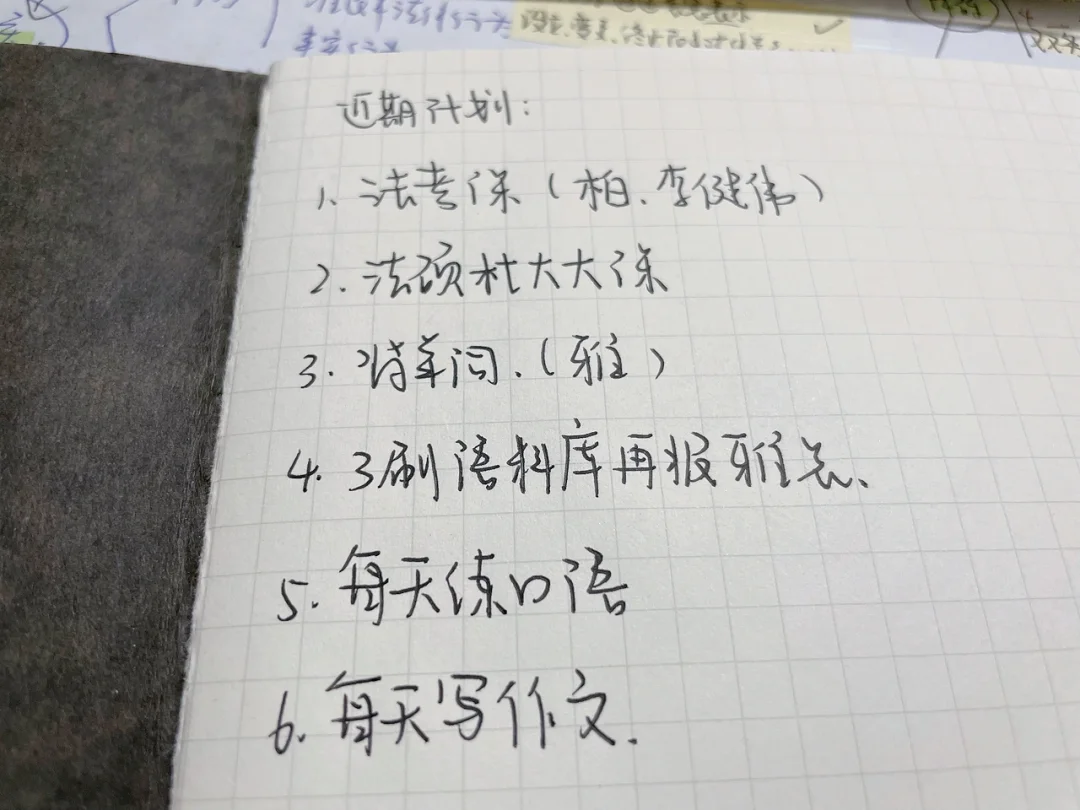 近期计划:
1. 法考课(柏、李健伟)
2. 法硕杜大大课
3. 背单词.(雅)
4. 3刷语料库再报雅思、
5. 每天练口语
6. 每天写作文.